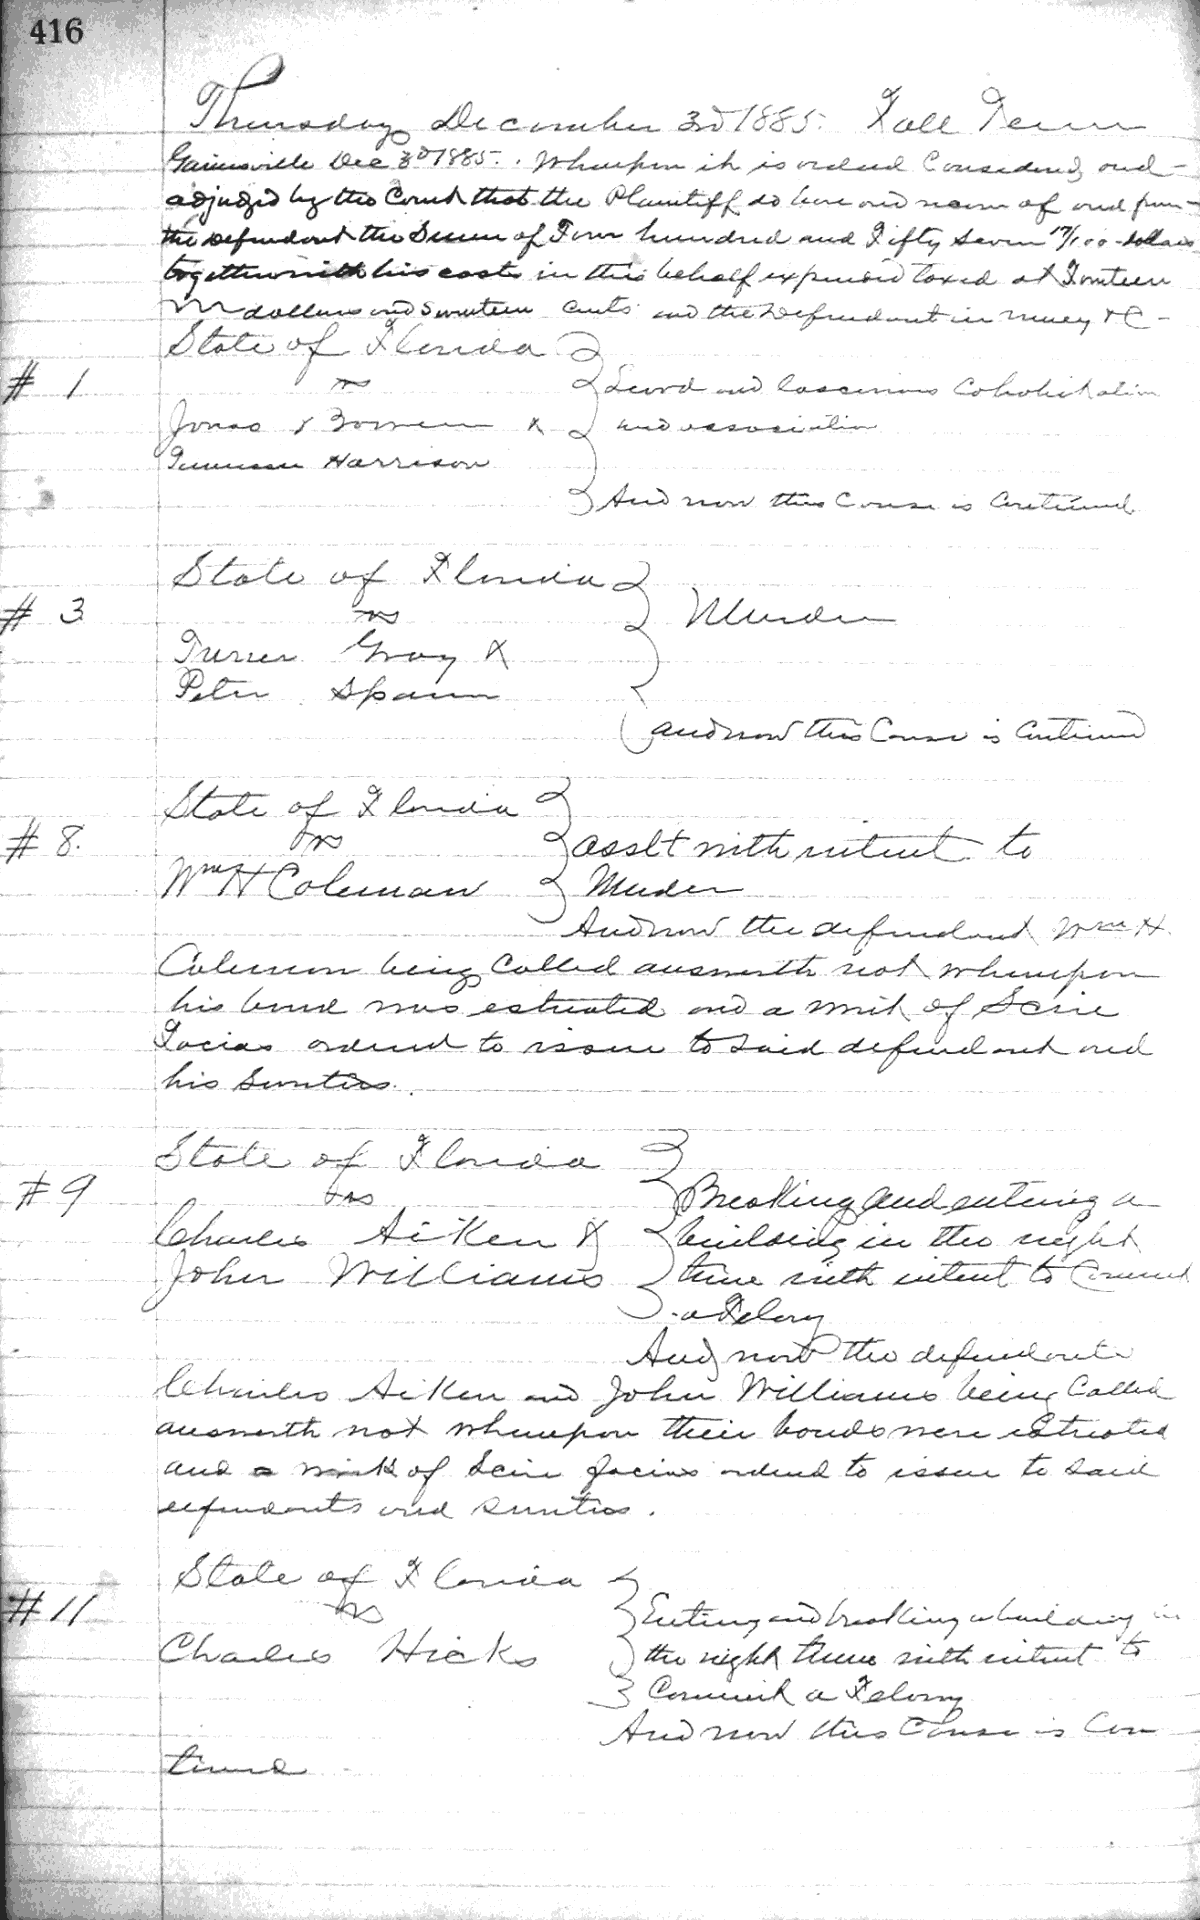 416
Thursday December 3rd 1885. Fall Term
Gainesville Dec 3rd 1885. Whereupon it is ordered Considered and
adjudged by the Court that the Plaintiff do have and recover of and from
the Defendant the Sum of Four hundred and Fifty Seven 17/100 dollars
together with his costs in this behalf expended taxed at Fourteen
dollars and Seventeen cents and the Defendant in mercy &C
State of Florida
# 1 vs Lewd and lascivious Cohabitation
Jonas Bowen & and association
Harrison
And now this Cause is Continued
State of Florida
# 3 vs Murder
Turner Gray &
Peter Spann
and now this Cause is Continued
State of Florida
# 8. vs asslt with intent to
Wm H Coleman Murder
And now the defendant Wm H.
Coleman being Called answereth not whereupon
his bond was estreated and a writ of Scire
Facias ordered to issue to said defendant and
his Sureties.
State of Florida
# 9 vs Breaking and entering a
Charles Aiken & building in the night
John Williams time with intent to Commit
a Felony
And now the defendants
Charles Aiken and John Williams being Called
answereth not whereupon their bonds were Estreated
and a writ of Scire facias ordered to issue to said
defendants and Sureties.
State of Florida
# 11 vs Entering and breaking a building in
Charles Hicks the night time with intent to
Commit a Felony
And now this Cause is Con
tinued